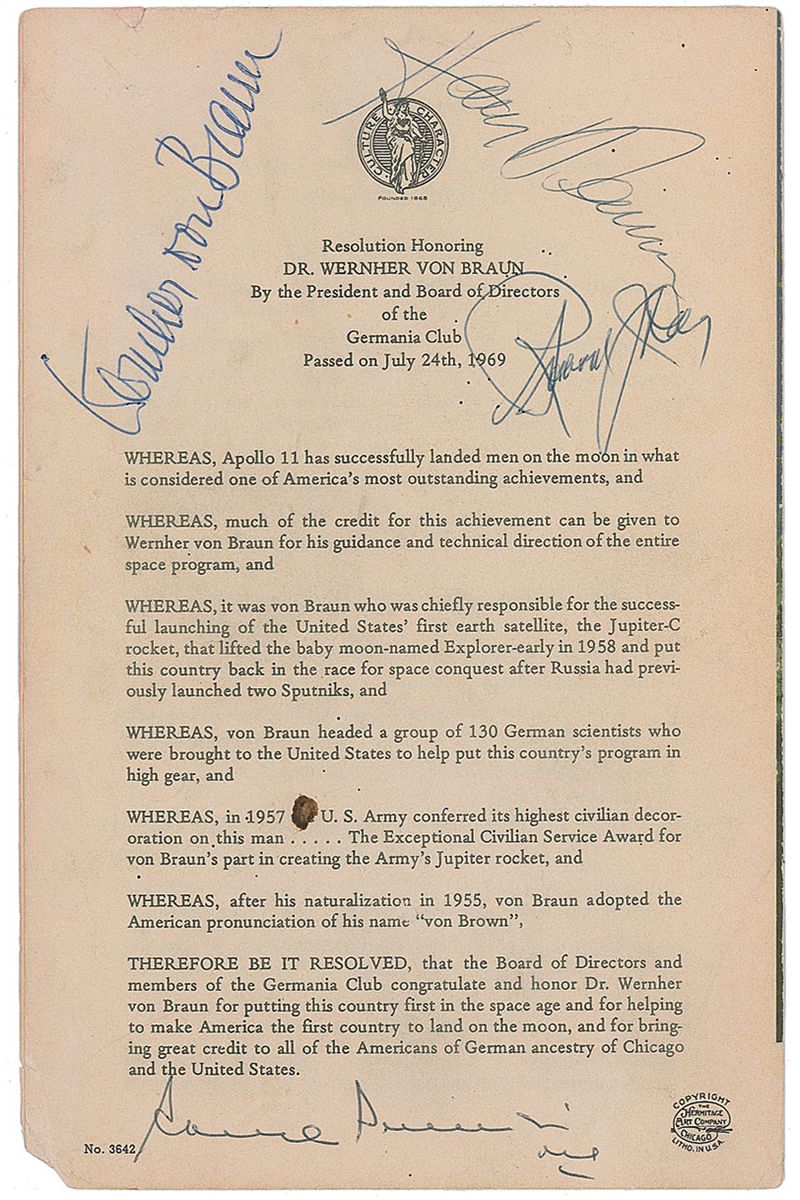 Wernher von Braun
CULTURE CHARACTER
FOUNDED 1865
Resolution Honoring
DR. WERNHER VON BRAUN
By the President and Board of Directors
of the
Germania Club
Passed on July 24th, 1969
WHEREAS, Apollo 11 has successfully landed men on the moon in what
is considered one of America's most outstanding achievements, and
WHEREAS, much of the credit for this achievement can be given to
Wernher von Braun for his guidance and technical direction of the entire
space program, and
WHEREAS, it was von Braun who was chiefly responsible for the success-
ful launching of the United States' first earth satellite, the Jupiter-C
rocket, that lifted the baby moon-named Explorer-early in 1958 and put
this country back in the race for space conquest after Russia had previ-
ously launched two Sputniks, and
WHEREAS, von Braun headed a group of 130 German scientists who
were brought to the United States to help put this country's program in
high gear, and
WHEREAS, in 1957 U. S. Army conferred its highest civilian decor-
oration on this man . . . . . The Exceptional Civilian Service Award for
von Braun's part in creating the Army's Jupiter rocket, and
WHEREAS, after his naturalization in 1955, von Braun adopted the
American pronunciation of his name "von Brown",
THEREFORE BE IT RESOLVED, that the Board of Directors and
members of the Germania Club congratulate and honor Dr. Wernher
von Braun for putting this country first in the space age and for helping
to make America the first country to land on the moon, and for bring-
ing great credit to all of the Americans of German ancestry of Chicago
and the United States.
No. 3642
COPYRIGHT
THE
HERMITAGE
ART COMPANY
CHICAGO
LITHO. IN U.S.A.